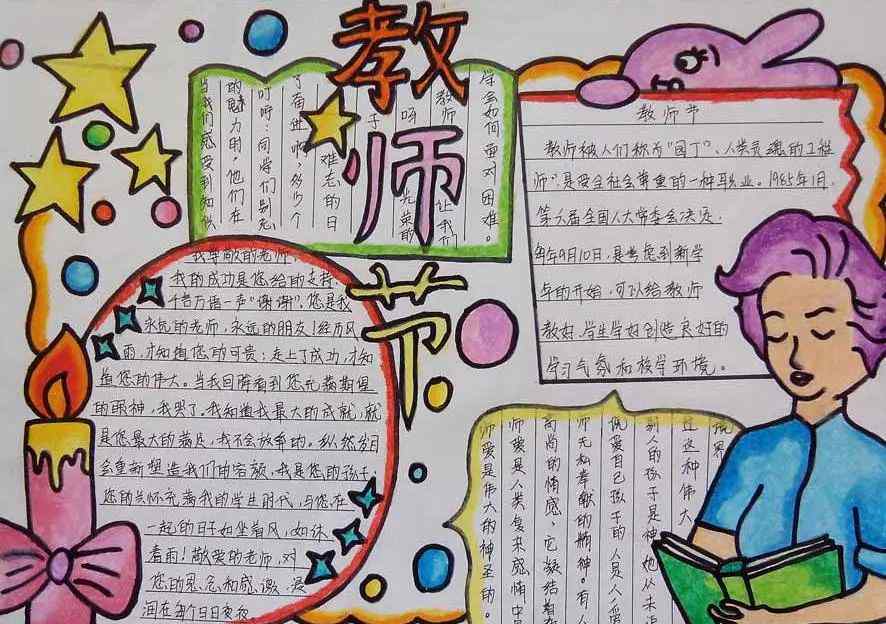 教师节
教师节
教师被人们称为"园丁"、人类灵魂的工程
师",是受全社会尊重的一种职业。1985年1月,
第六届全国人大常委会决定,
每年9月10日,是考虑到新学
年的开始,可以给教师
教好、学生学好创造良好的
学习气氛和校学环境。
学会如何面对困难。
教师
让我们
光荣的
难忘的日
子
了奋进啊,多少个
叮咛:同学们别忘
的魅力时,他们在
当我们感受到知识
我尊敬的老师
我的成功是您给的支持,
千言万语一声"谢谢",您是我
永远的老师,永远的朋友!经历风
雨,才知道您的可贵;走上了成功,才知
道您的伟大。当我回眸看到您充满期望
的眼神,我哭了。我知道我最大的成就,就
是您最大的满足,我不会放弃的。纵然岁月
会重新塑造我们的容颜,我是您的孩子;
您的关怀充满我的学生时代,与您在
一起的日子如坐春风,如沐
春雨!敬爱的老师,对
您的思念和感激,浸
润在每个日日夜夜
过这种伟大
别人的孩子是神,她从未
低爱自己孩子的人是人,爱
师无私奉献的精神。有人
高尚的情感,它凝结着
师爱是人类复杂感情中
师爱是伟大的神圣的。